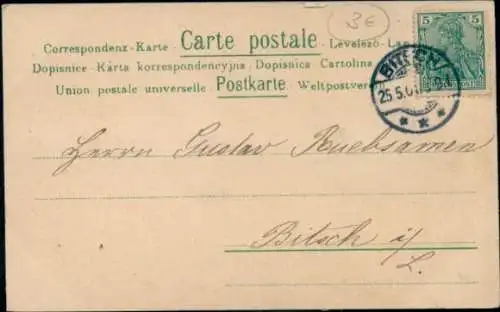 3€
Correspondenz-Karte · Carte postale · Levelező-La
Dopisnice · Karta korrespondencyjna · Dopisnica Cartolina
Union postale universelle Postkarte Weltpostver
5 5
BINGEN
25.5.01
Herrn Gustav Ruebsamen
Bitsch i/
L.